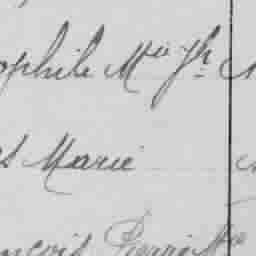 ophile Mie Jh
s Marie
nçois Pierre Mie